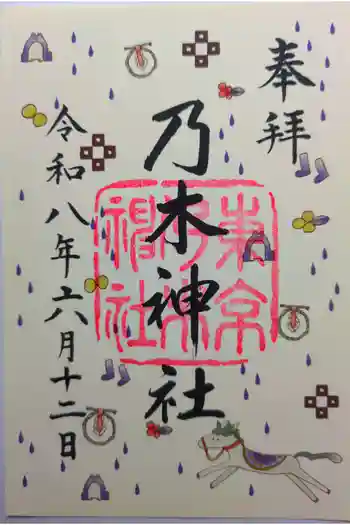 奉拝
乃木神社
令和八年六月十二日
東京
乃木
神社